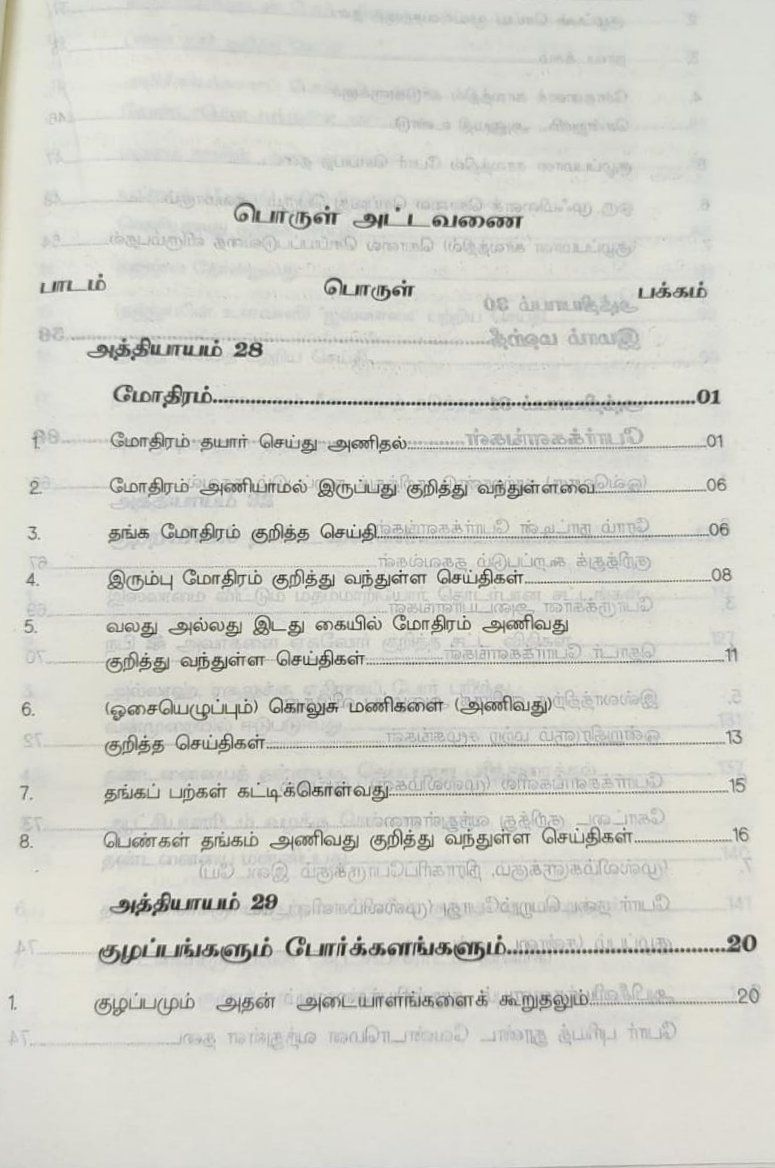 பொருள் அட்டவணை
பாடம் பொருள் பக்கம்
அத்தியாயம் 28
மோதிரம்..........01
1. மோதிரம் தயார் செய்து அணிதல்..........01
2. மோதிரம் அணியாமல் இருப்பது குறித்து வந்துள்ளவை..........06
3. தங்க மோதிரம் குறித்த செய்தி..........06
4. இரும்பு மோதிரம் குறித்து வந்துள்ள செய்திகள்..........08
5. வலது அல்லது இடது கையில் மோதிரம் அணிவது
குறித்து வந்துள்ள செய்திகள்..........11
6. (ஓசையெழுப்பும்) கொலுசு மணிகளை (அணிவது)
குறித்த செய்திகள்..........13
7. தங்கப் பற்கள் கட்டிக்கொள்வது..........15
8. பெண்கள் தங்கம் அணிவது குறித்து வந்துள்ள செய்திகள்..........16
அத்தியாயம் 29
குழப்பங்களும் போர்க்களங்களும்..........20
1. குழப்பமும் அதன் அடையாளங்களைக் கூறுதலும்..........20